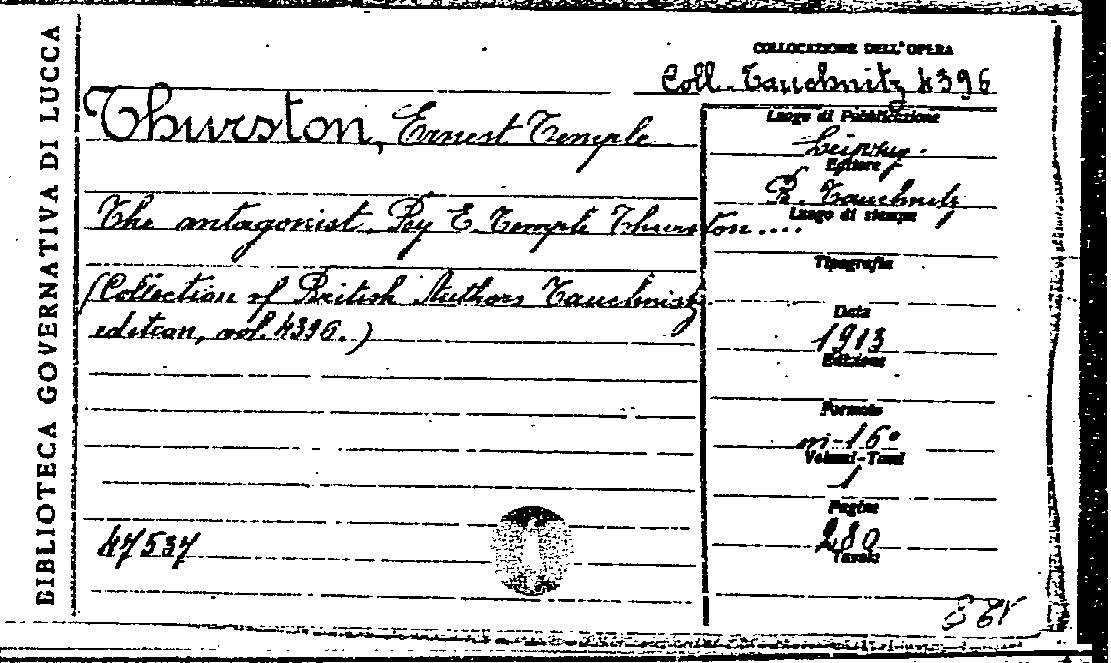 BIBLIOTECA GOVERNATIVA DI LUCCA
COLLOCAZIONE DELL'OPERA
Coll. Tauchnitz 4396
Thurston, Ernest Temple
The antagonist. By E. Temple Thurston....
(Collection of British Authors Tauchnitz
edition, vol. 4396.)
47537
Luogo di Pubblicazione
Leipzig.
Editore
B. Tauchnitz
Luogo di stampa
Tipografia
Data
1913
Edizione
Formato
in-16°
Volumi-Tomi
1
Pagine
280
Tavole